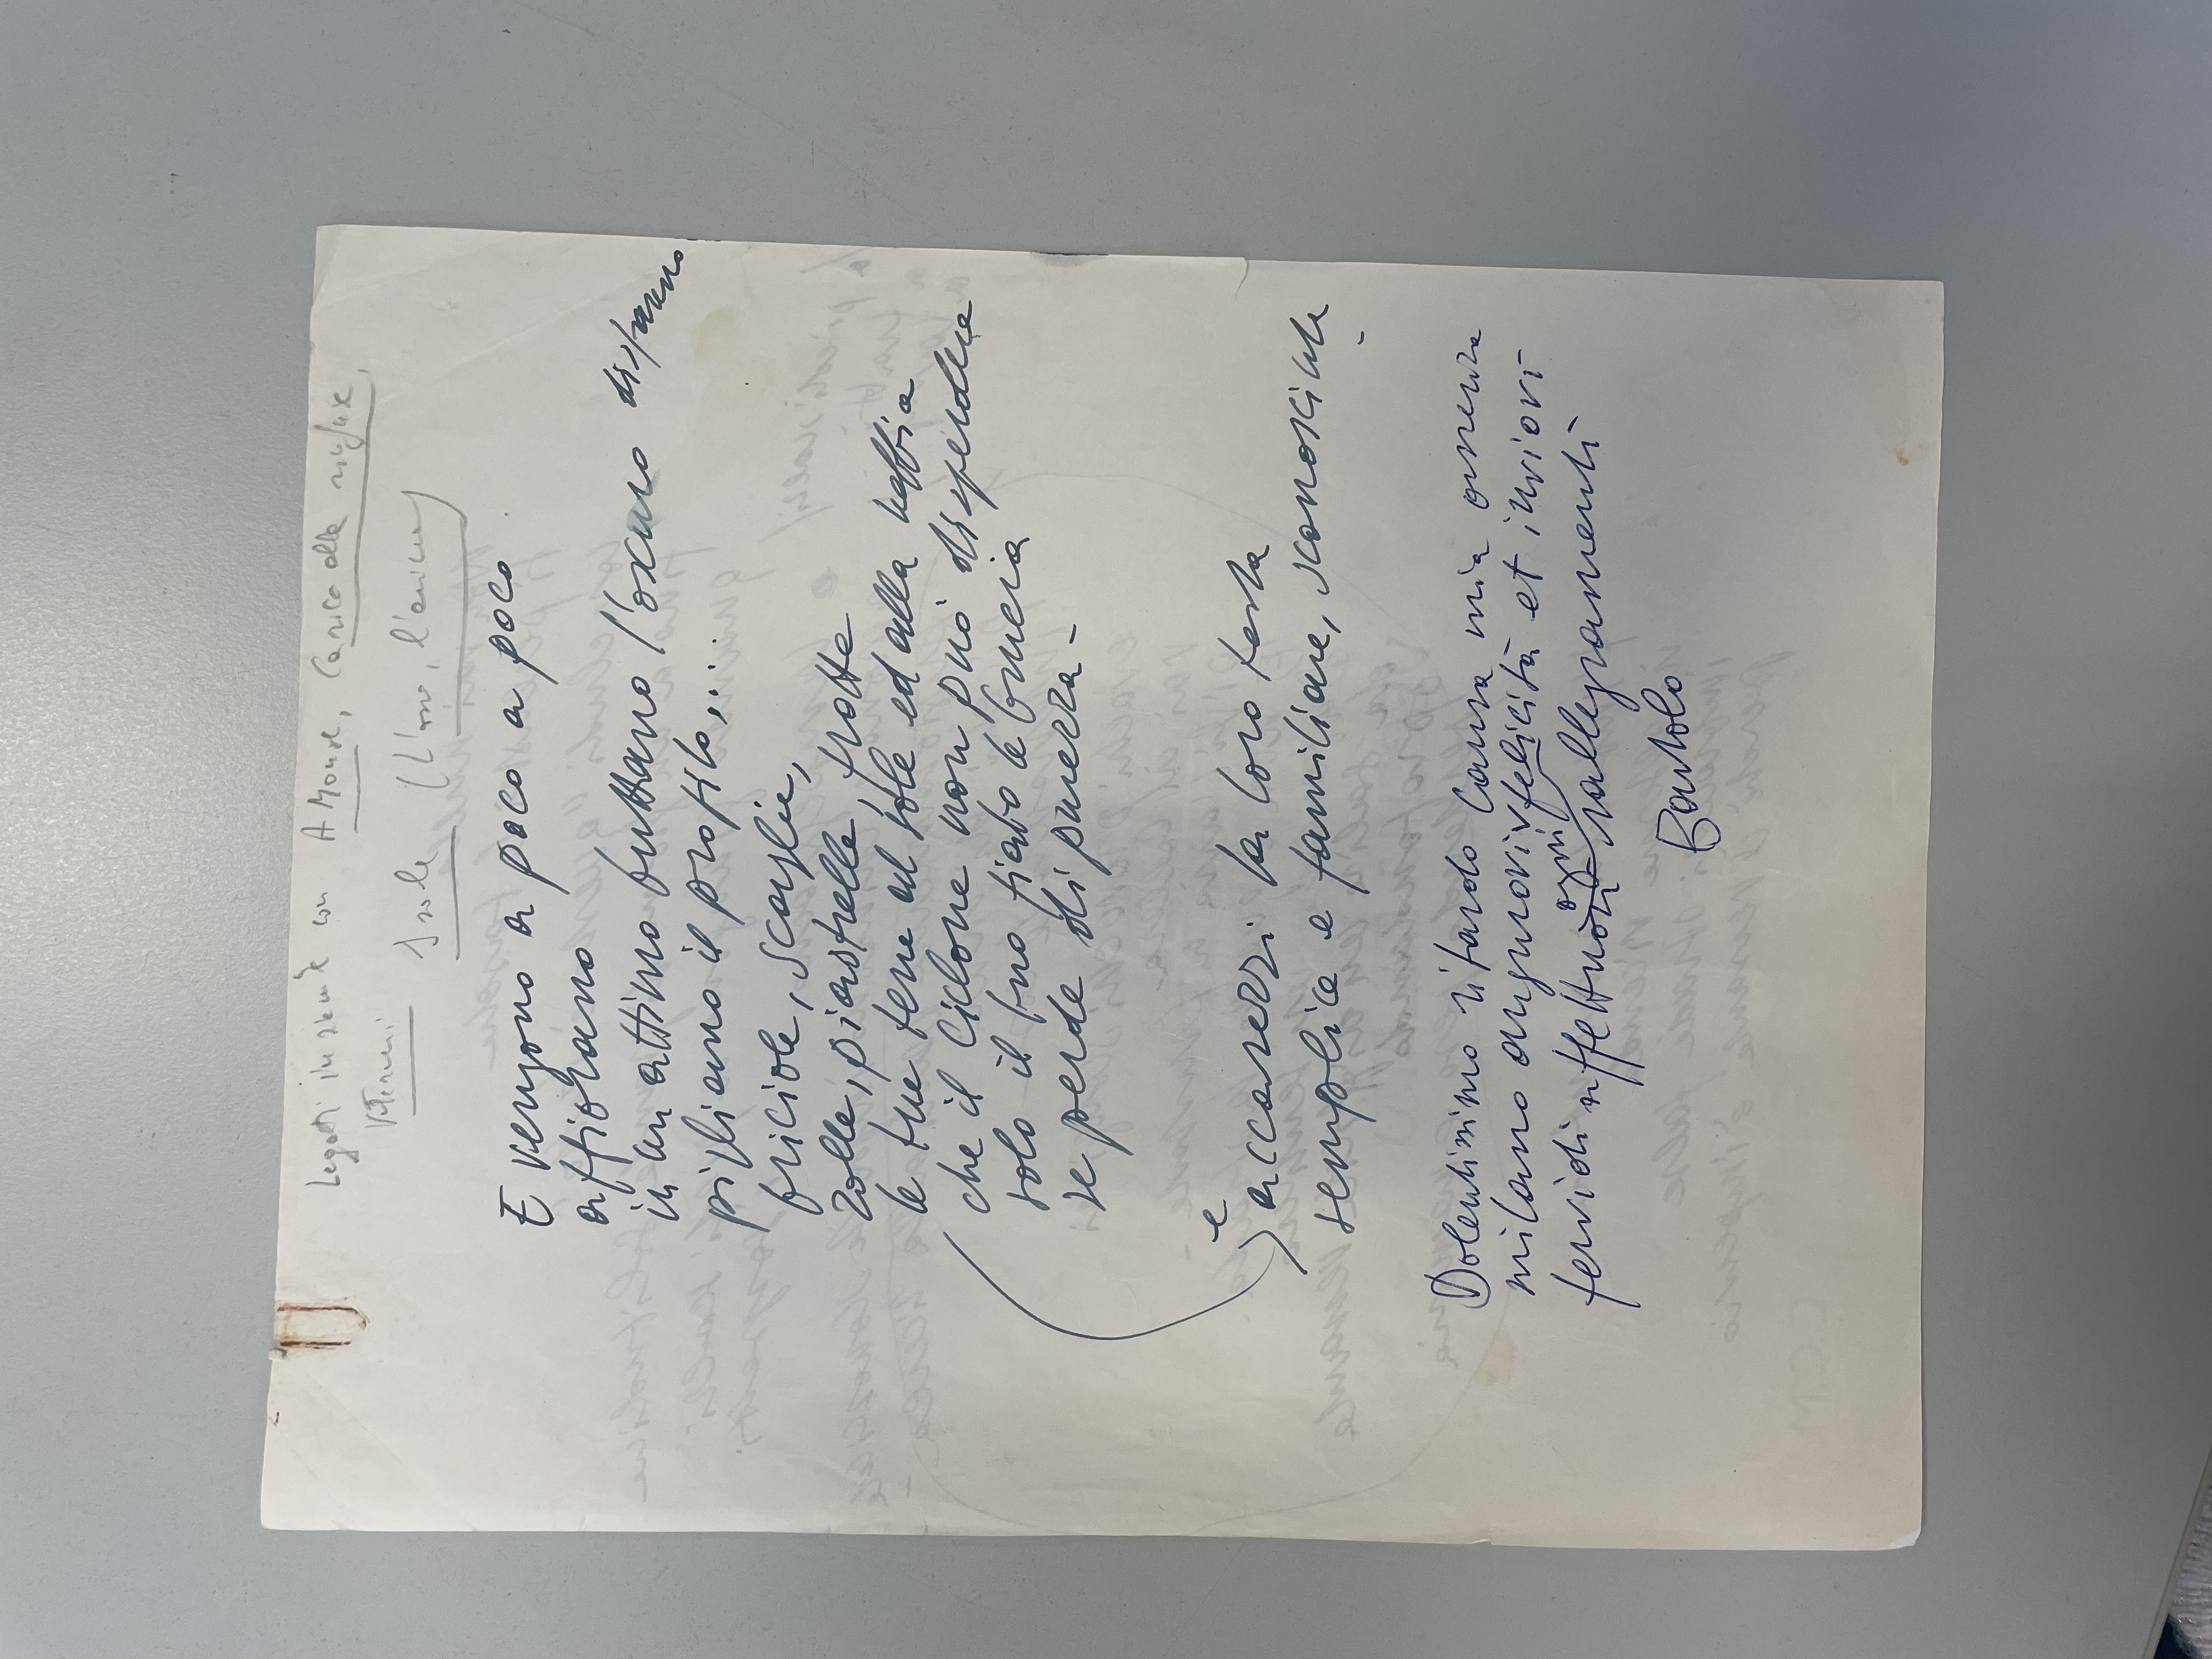 Legati insieme con A Mosè, Carico alle mufse,
Vetrani
Isole (L'uno, l'amico)
E vengono a poco a poco
affiorano
in un attimo buttano l'oscuro disumano
pigliano il profilo,...
briciole, scaglie,
zolle, piastrelle, frotte
le tue terre al sole ed alla nebbia
che il Ciclone non può disperdere
solo il tuo fiato le brucia
se perde di purezza -
e
accarezzi la loro testa
semplice e familiare, sconosciute -
Dolentissimo ritardo causa mia assenza
milano augurovi felicità et inviovi
ogni
fervidi affettuosi rallegramenti
Bartolo